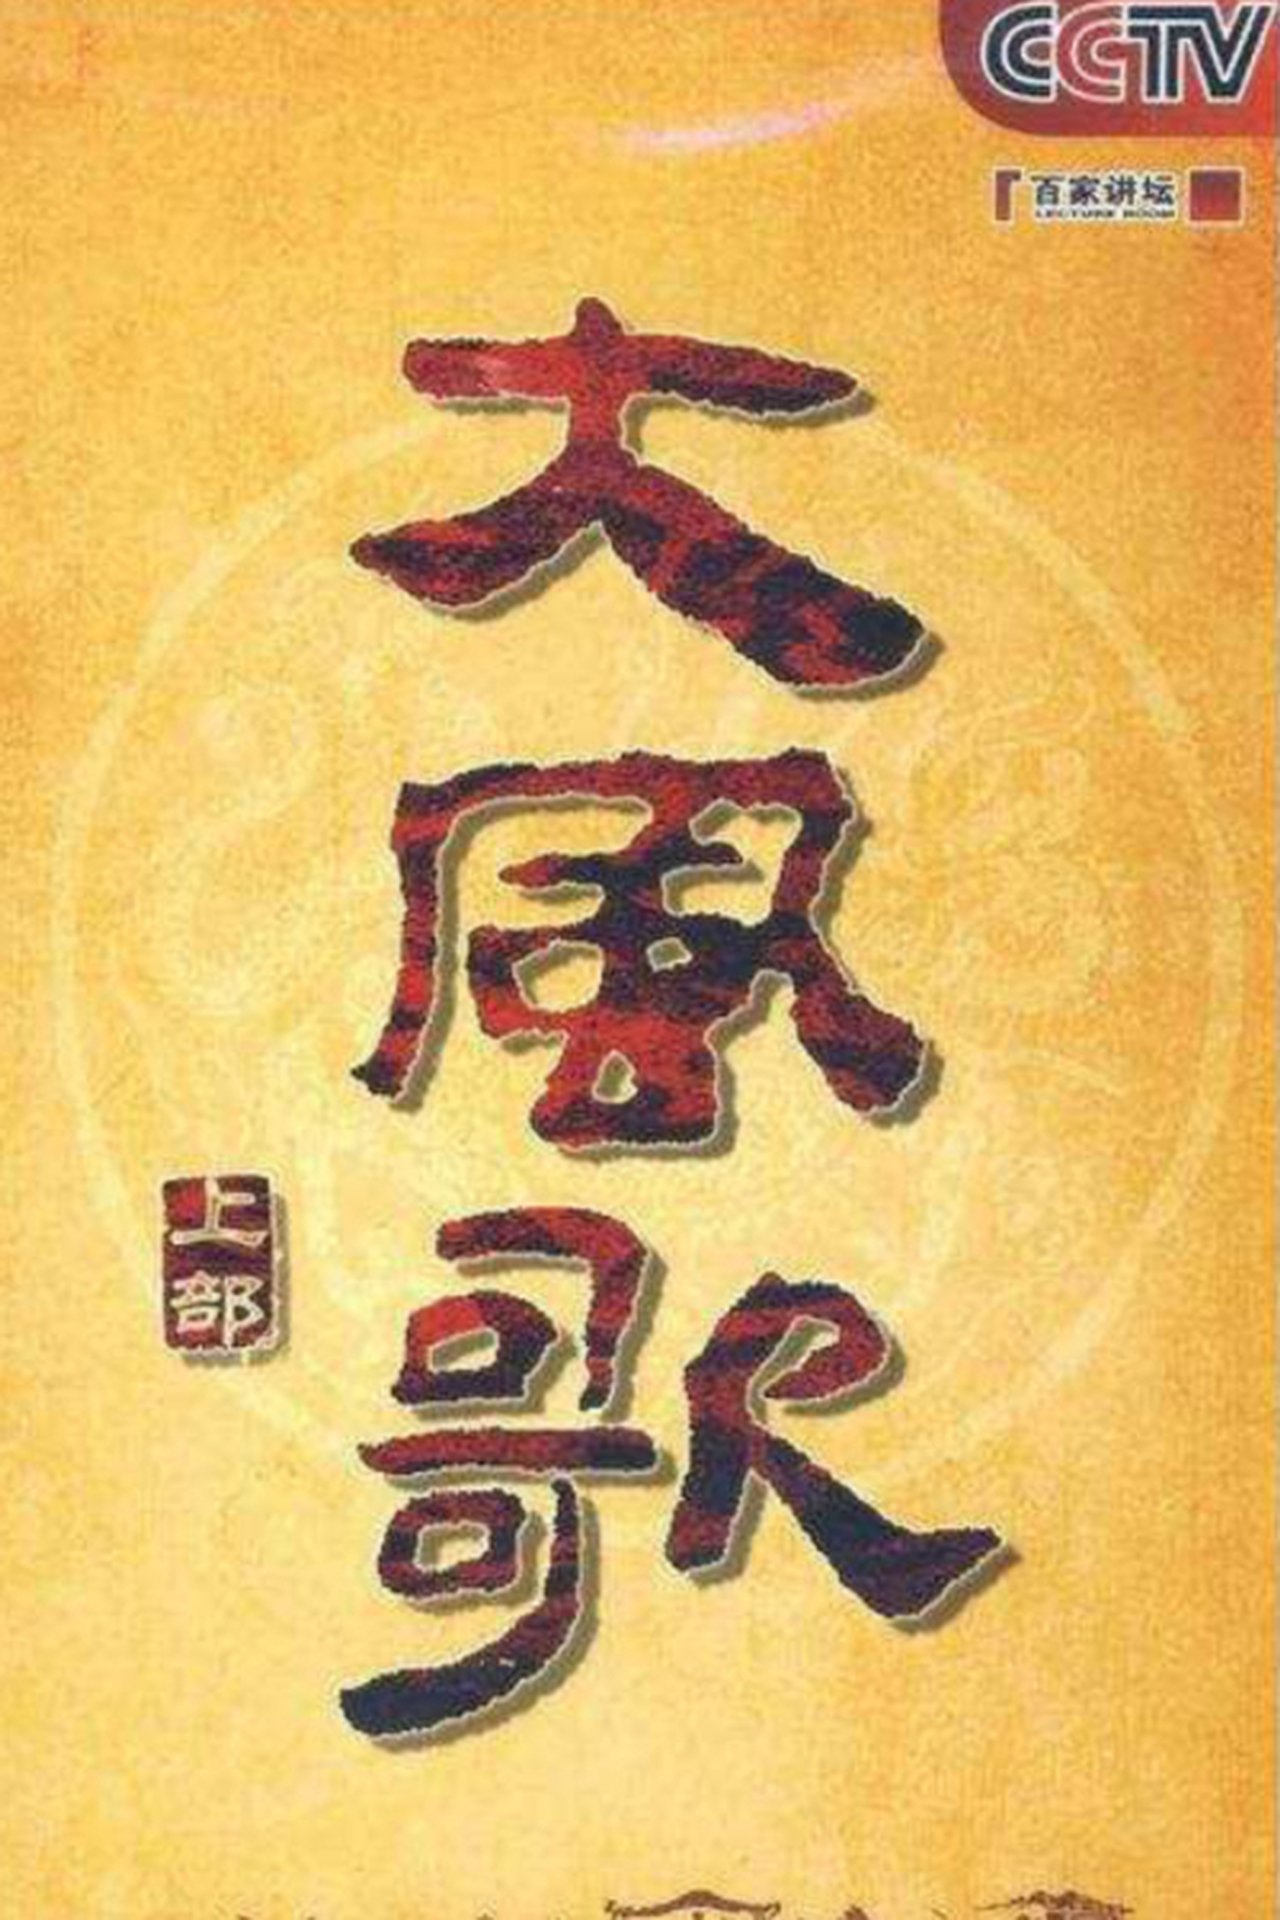 CCTV
百家讲坛
LECTURE ROOM
大風歌
上部